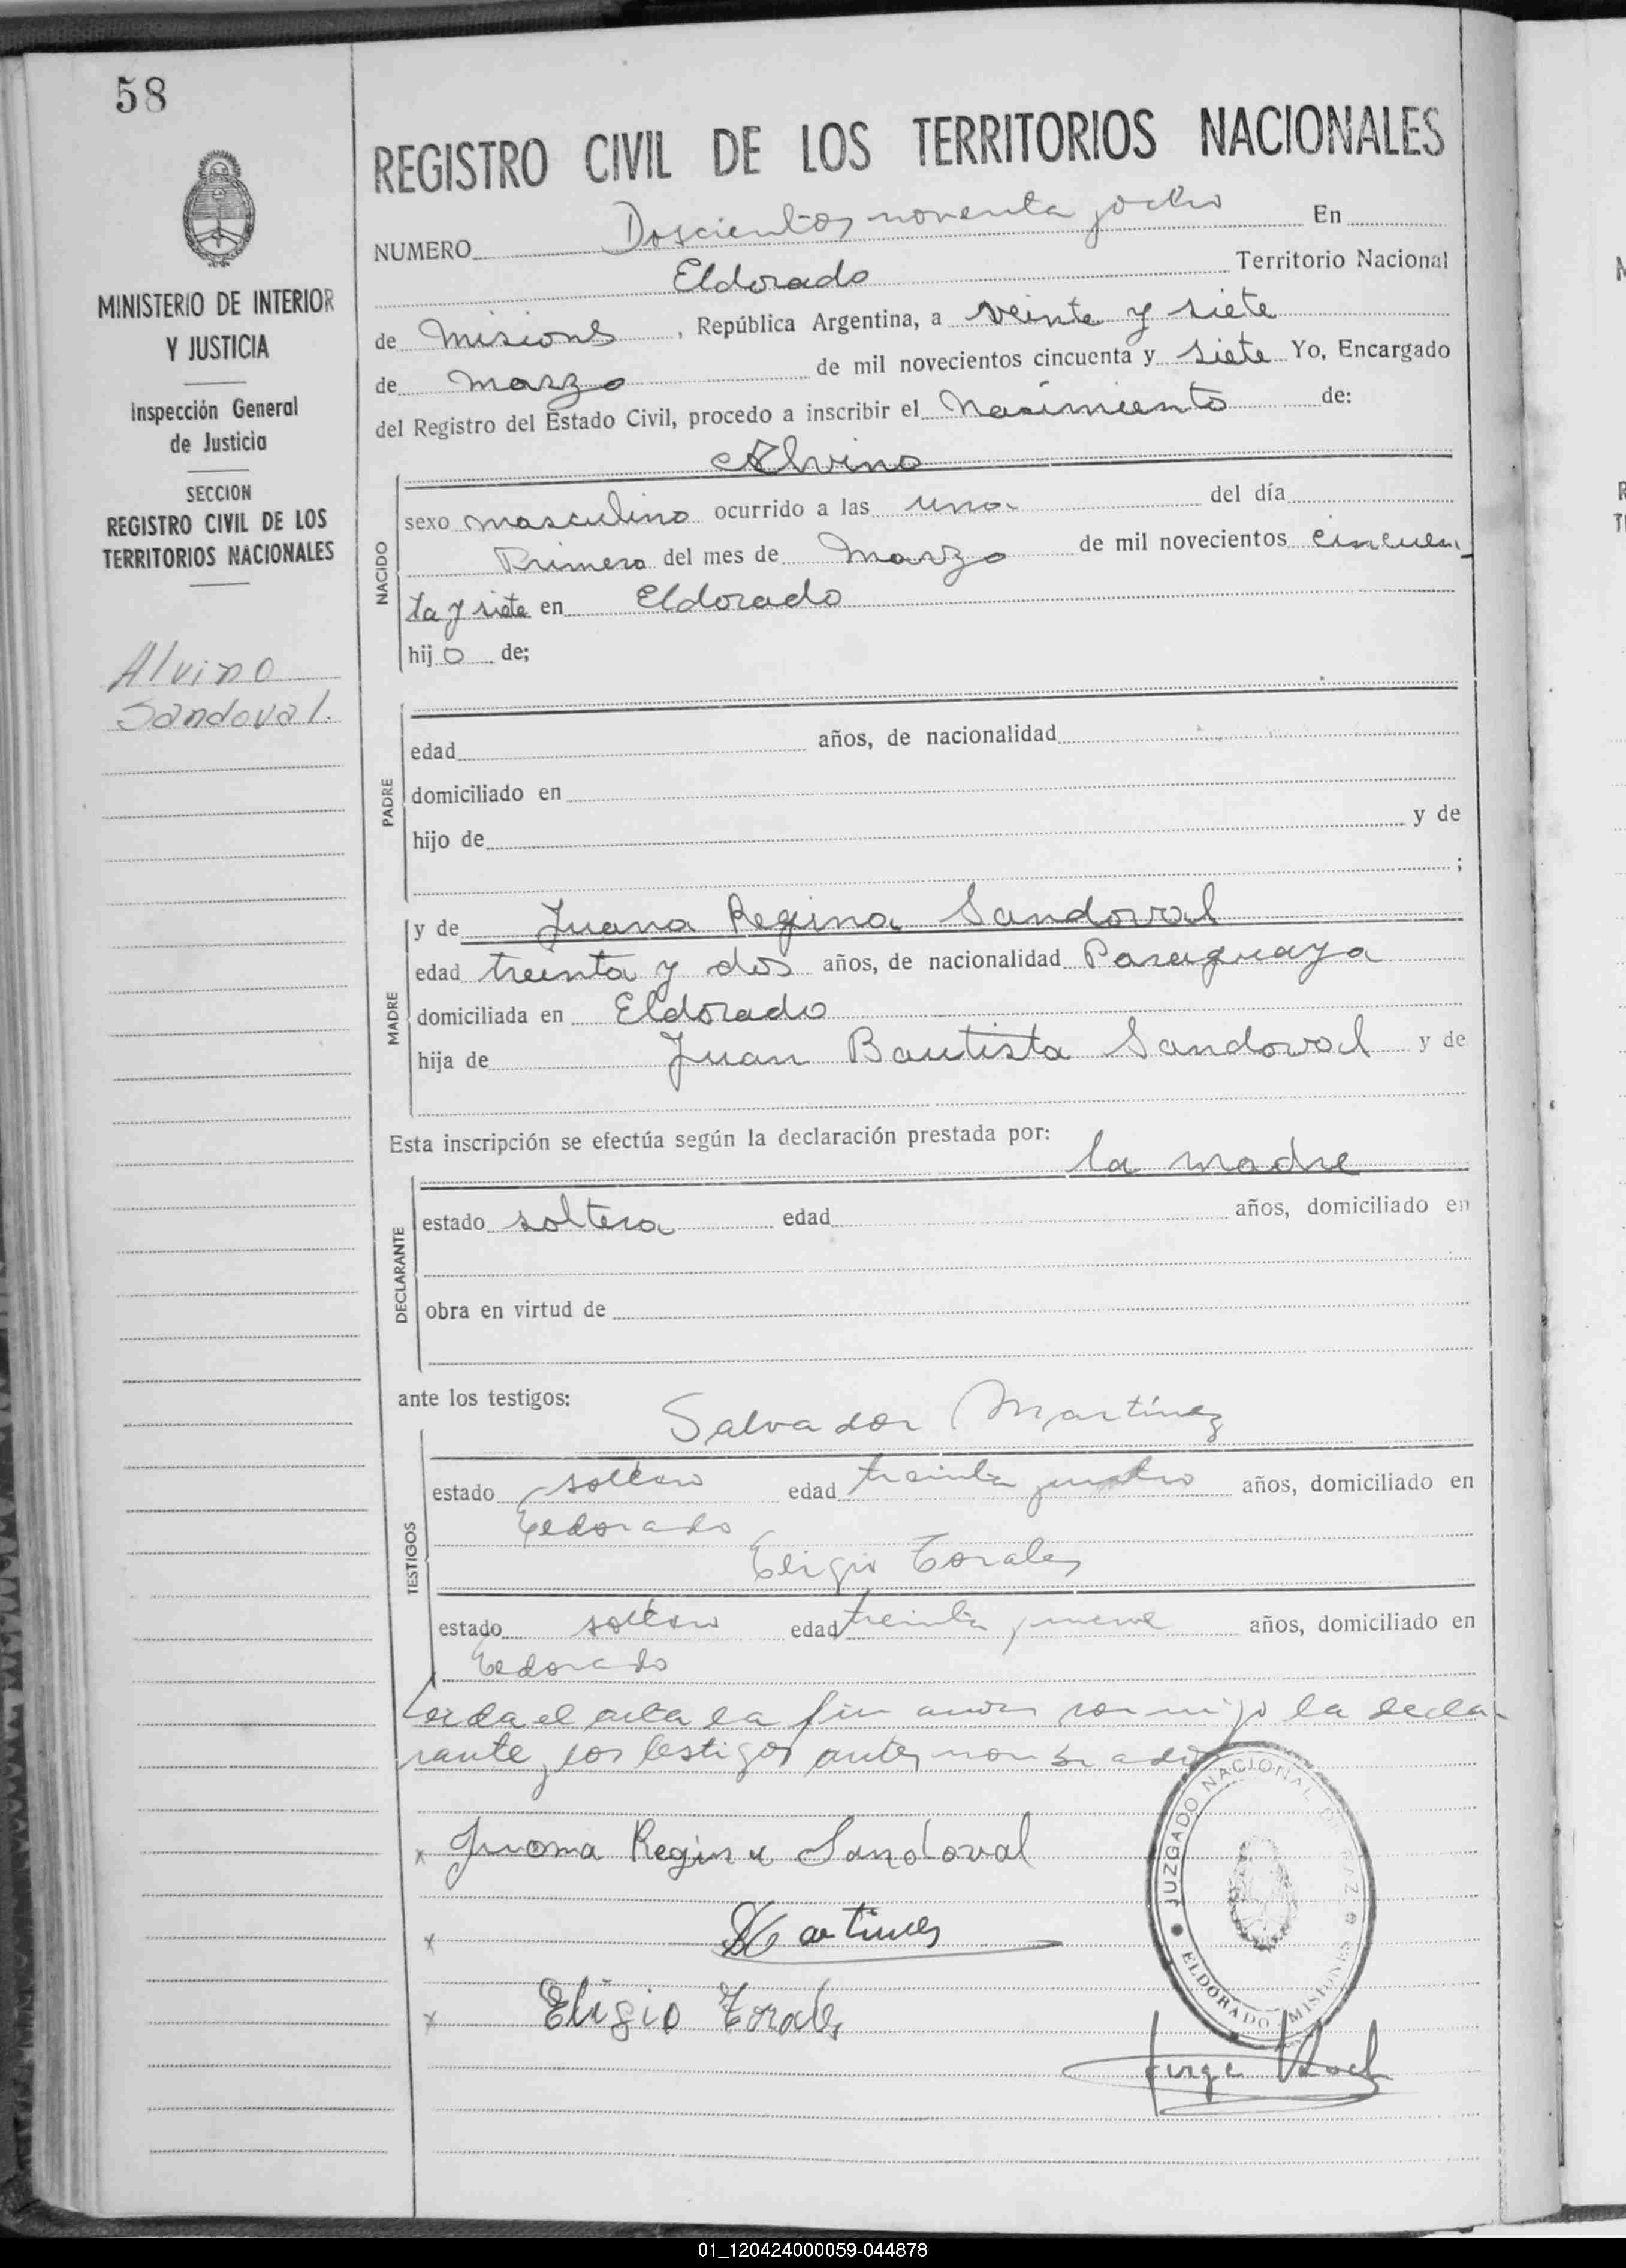 58
MINISTERIO DE INTERIOR
Y JUSTICIA
Inspección General
de Justicia
SECCION
REGISTRO CIVIL DE LOS
TERRITORIOS NACIONALES
Alvino
Sandoval.
REGISTRO CIVIL DE LOS TERRITORIOS NACIONALES
NUMERO Doscientos noventa y ocho En
Eldorado Territorio Nacional
de Misiones, República Argentina, a veinte y siete
de marzo de mil novecientos cincuenta y siete Yo, Encargado
del Registro del Estado Civil, procedo a inscribir el Nasimiento de:
Alvino
NACIDO
sexo masculino ocurrido a las una del día
Primero del mes de Marzo de mil novecientos cincuen
ta y siete en Eldorado
hijo de;
PADRE
edad años, de nacionalidad
domiciliado en
hijo de y de
;
MADRE
y de Juana Regina Sandoval
edad treinta y dos años, de nacionalidad Paraguaya
domiciliada en Eldorado
hija de Juan Bautista Sandoval y de
Esta inscripción se efectúa según la declaración prestada por:
la madre
DECLARANTE
estado soltera edad años, domiciliado en
obra en virtud de
ante los testigos:
Salvador Martínez
TESTIGOS
estado soltero edad treinta y cuatro años, domiciliado en
Eldorado
Eligio Torales
estado soltero edad treinta y nueve años, domiciliado en
Eldorado
Leida el acta la firman conmigo la decla-
rante y los testigos antes nombrados
x Juana Regina Sandoval
x Martinez
x Eligio Torales
JUZGADO NACIONAL DE PAZ
ELDORADO MISIONES
Jorge
01_120424000059-044878